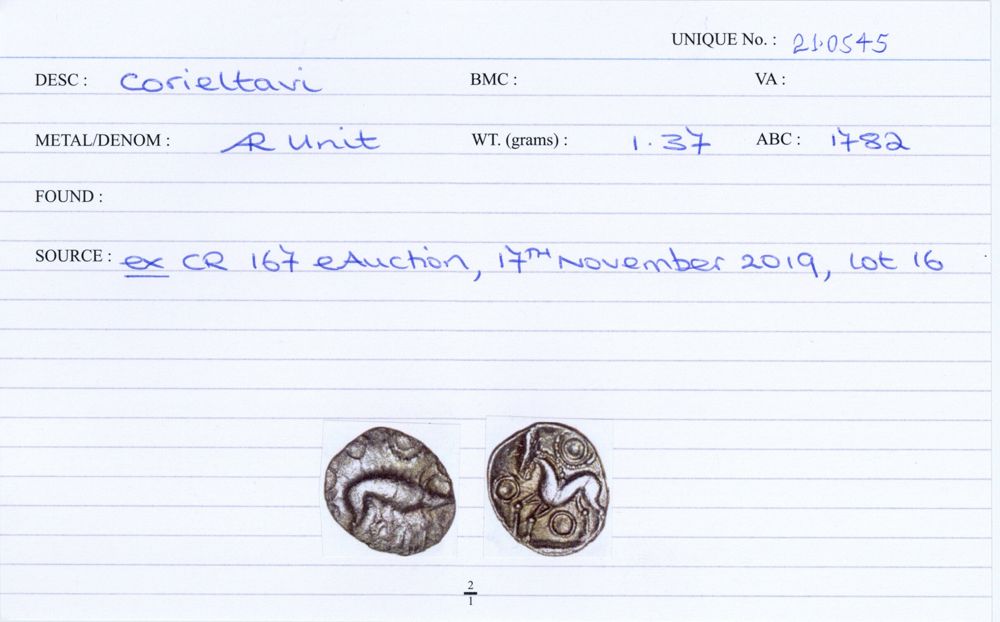 UNIQUE No. : 21.0545
DESC : Corieltavi BMC : VA :
METAL/DENOM : AR Unit WT. (grams) : 1.37 ABC : 1782
FOUND :
SOURCE : ex CR 167 eAuction, 17TH November 2019, lot 16
2
1